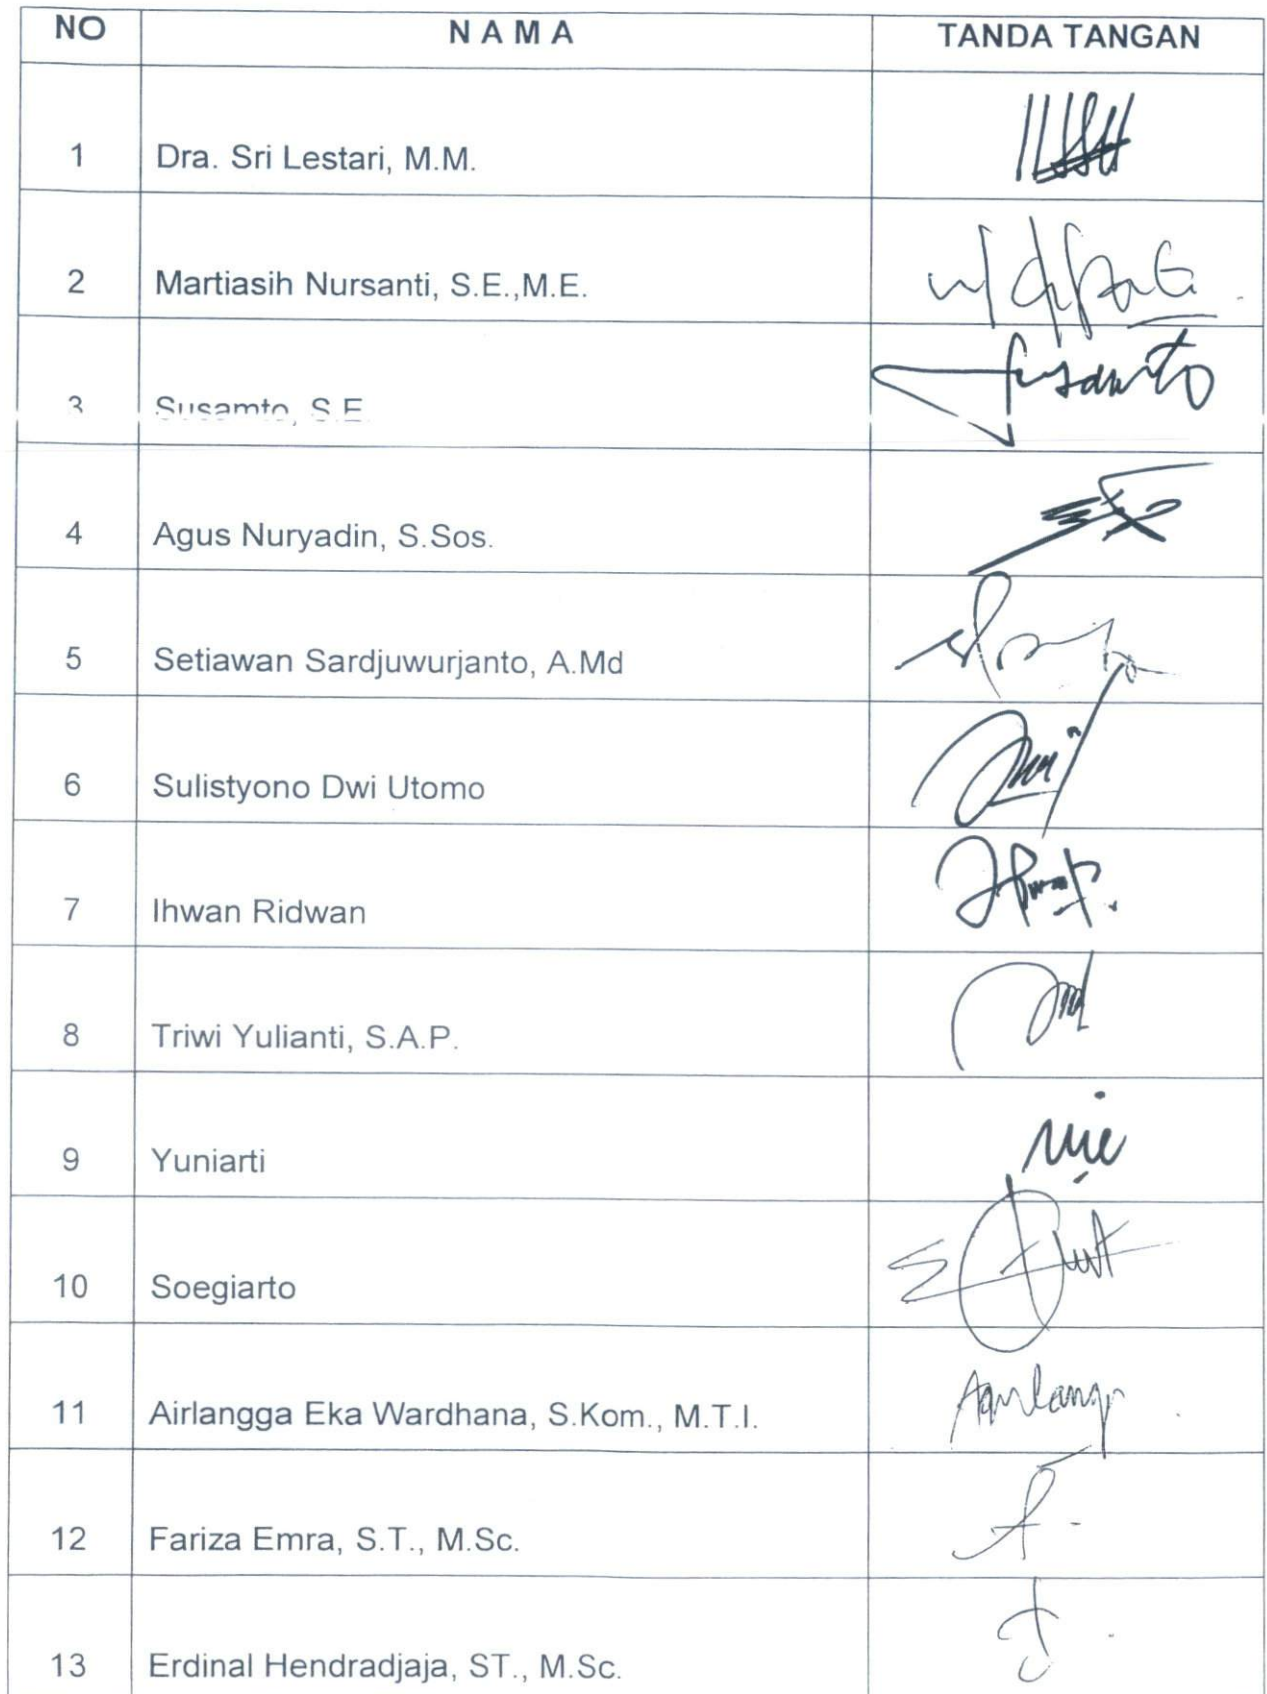 NO N A M A TANDA TANGAN
1 Dra. Sri Lestari, M.M.
2 Martiasih Nursanti, S.E.,M.E.
3 Susamto, S.E. Susanto
4 Agus Nuryadin, S.Sos.
5 Setiawan Sardjuwurjanto, A.Md
6 Sulistyono Dwi Utomo
7 Ihwan Ridwan
8 Triwi Yulianti, S.A.P.
9 Yuniarti
10 Soegiarto
11 Airlangga Eka Wardhana, S.Kom., M.T.I.
12 Fariza Emra, S.T., M.Sc.
13 Erdinal Hendradjaja, ST., M.Sc.